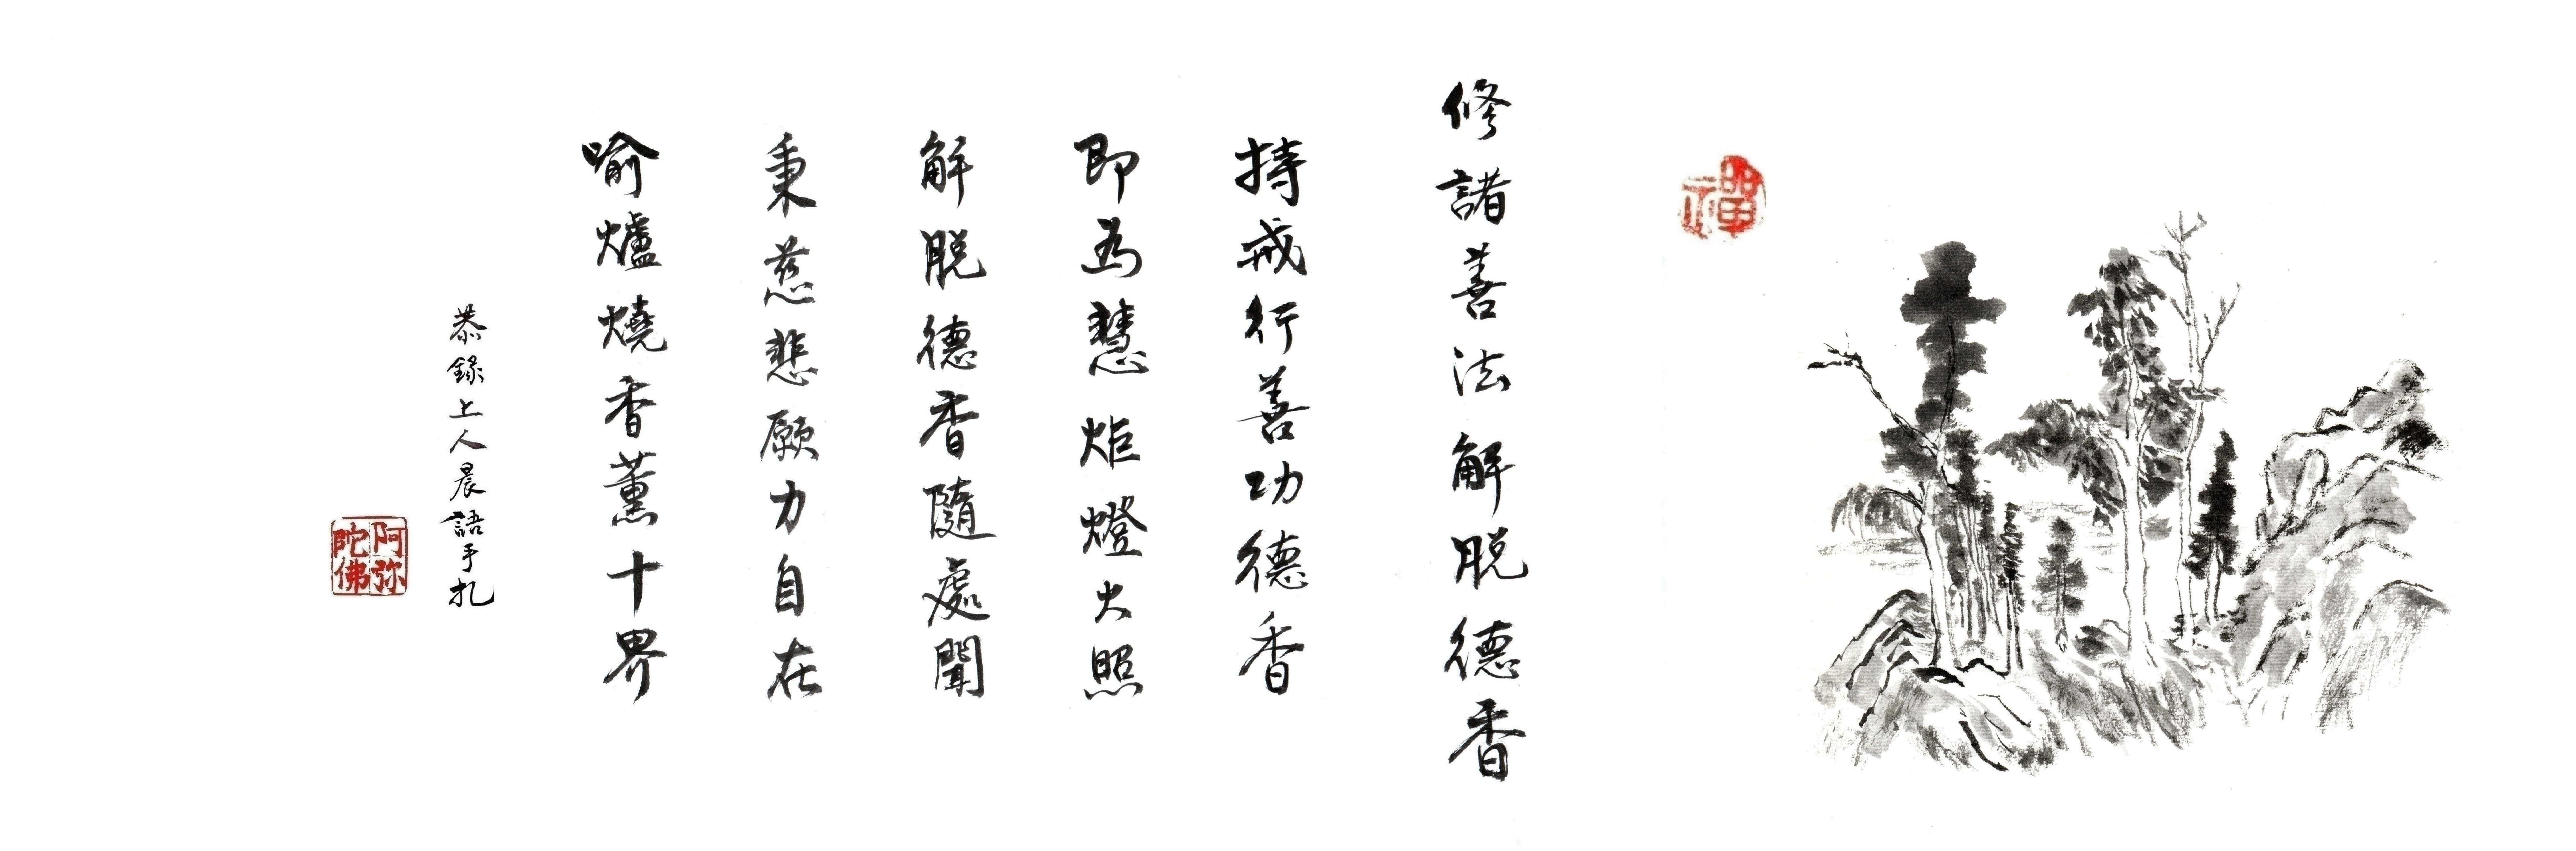 禪
修諸善法解脫德香
持戒行善功德香
即為慧炬燈火照
解脫德香隨處聞
秉慈悲願力自在
喻爐燒香薰十界
恭錄上人晨語手扎
阿弥
陀佛